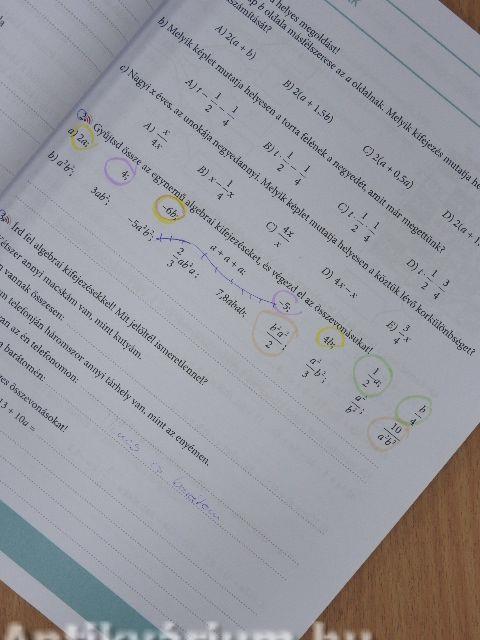 a helyes megoldást!
p b oldala másfélszerese az a oldalnak. Melyik kifejezés mutatja he
számítását?
A) 2(a + b)
B) 2(a + 1,5b)
C) 2(a + 0,5a)
D) 2(a + 1,
b) Melyik képlet mutatja helyesen a torta felének a negyedét, amit már megettünk?
A) t – 1/2 – 1/4
B) t · 1/2 – 1/4
C) t · 1/2 · 1/4
D) t – 1/2 · 3/4
c) Nagyi x éves, az unokája negyedannyi. Melyik képlet mutatja helyesen a köztük lévő korkülönbséget?
A) x/4x
B) x – 1/4 x
C) 4x/x
D) 4x – x
E) 3/4 x
2. Gyűjtsd össze az egynemű algebrai kifejezéseket, és végezd el az összevonásokat!
a) 2a; 4; –6b; a + a + a; –5; 4b; 1/2 a; b/4
b) a²b²; 3ab²; –5a²b²; 2/3 ab²a; 7,8abab; b²a²/2; a²/3 b²; a²/b²; 10/a²b²
3. Írd fel algebrai kifejezésekkel! Mit jelöltél ismeretlennel?
étszer annyi macskám van, mint kutyám.
vannak összesen:
m telefonján háromszor annyi tárhely van, mint az enyémen.
van az én telefonomon:
a barátomén:
nincs is barátom
es összevonásokat!
13 + 10u =
Antikvárium.hu